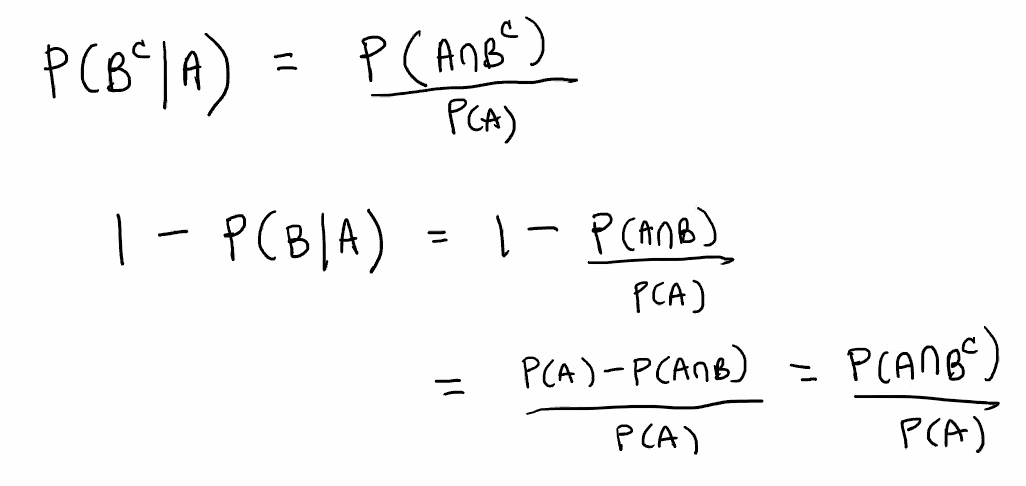 P(Bᶜ|A) = P(A∩Bᶜ)
P(A)
1 − P(B|A) = 1 − P(A∩B)
P(A)
= P(A)−P(A∩B) = P(A∩Bᶜ)
P(A) P(A)